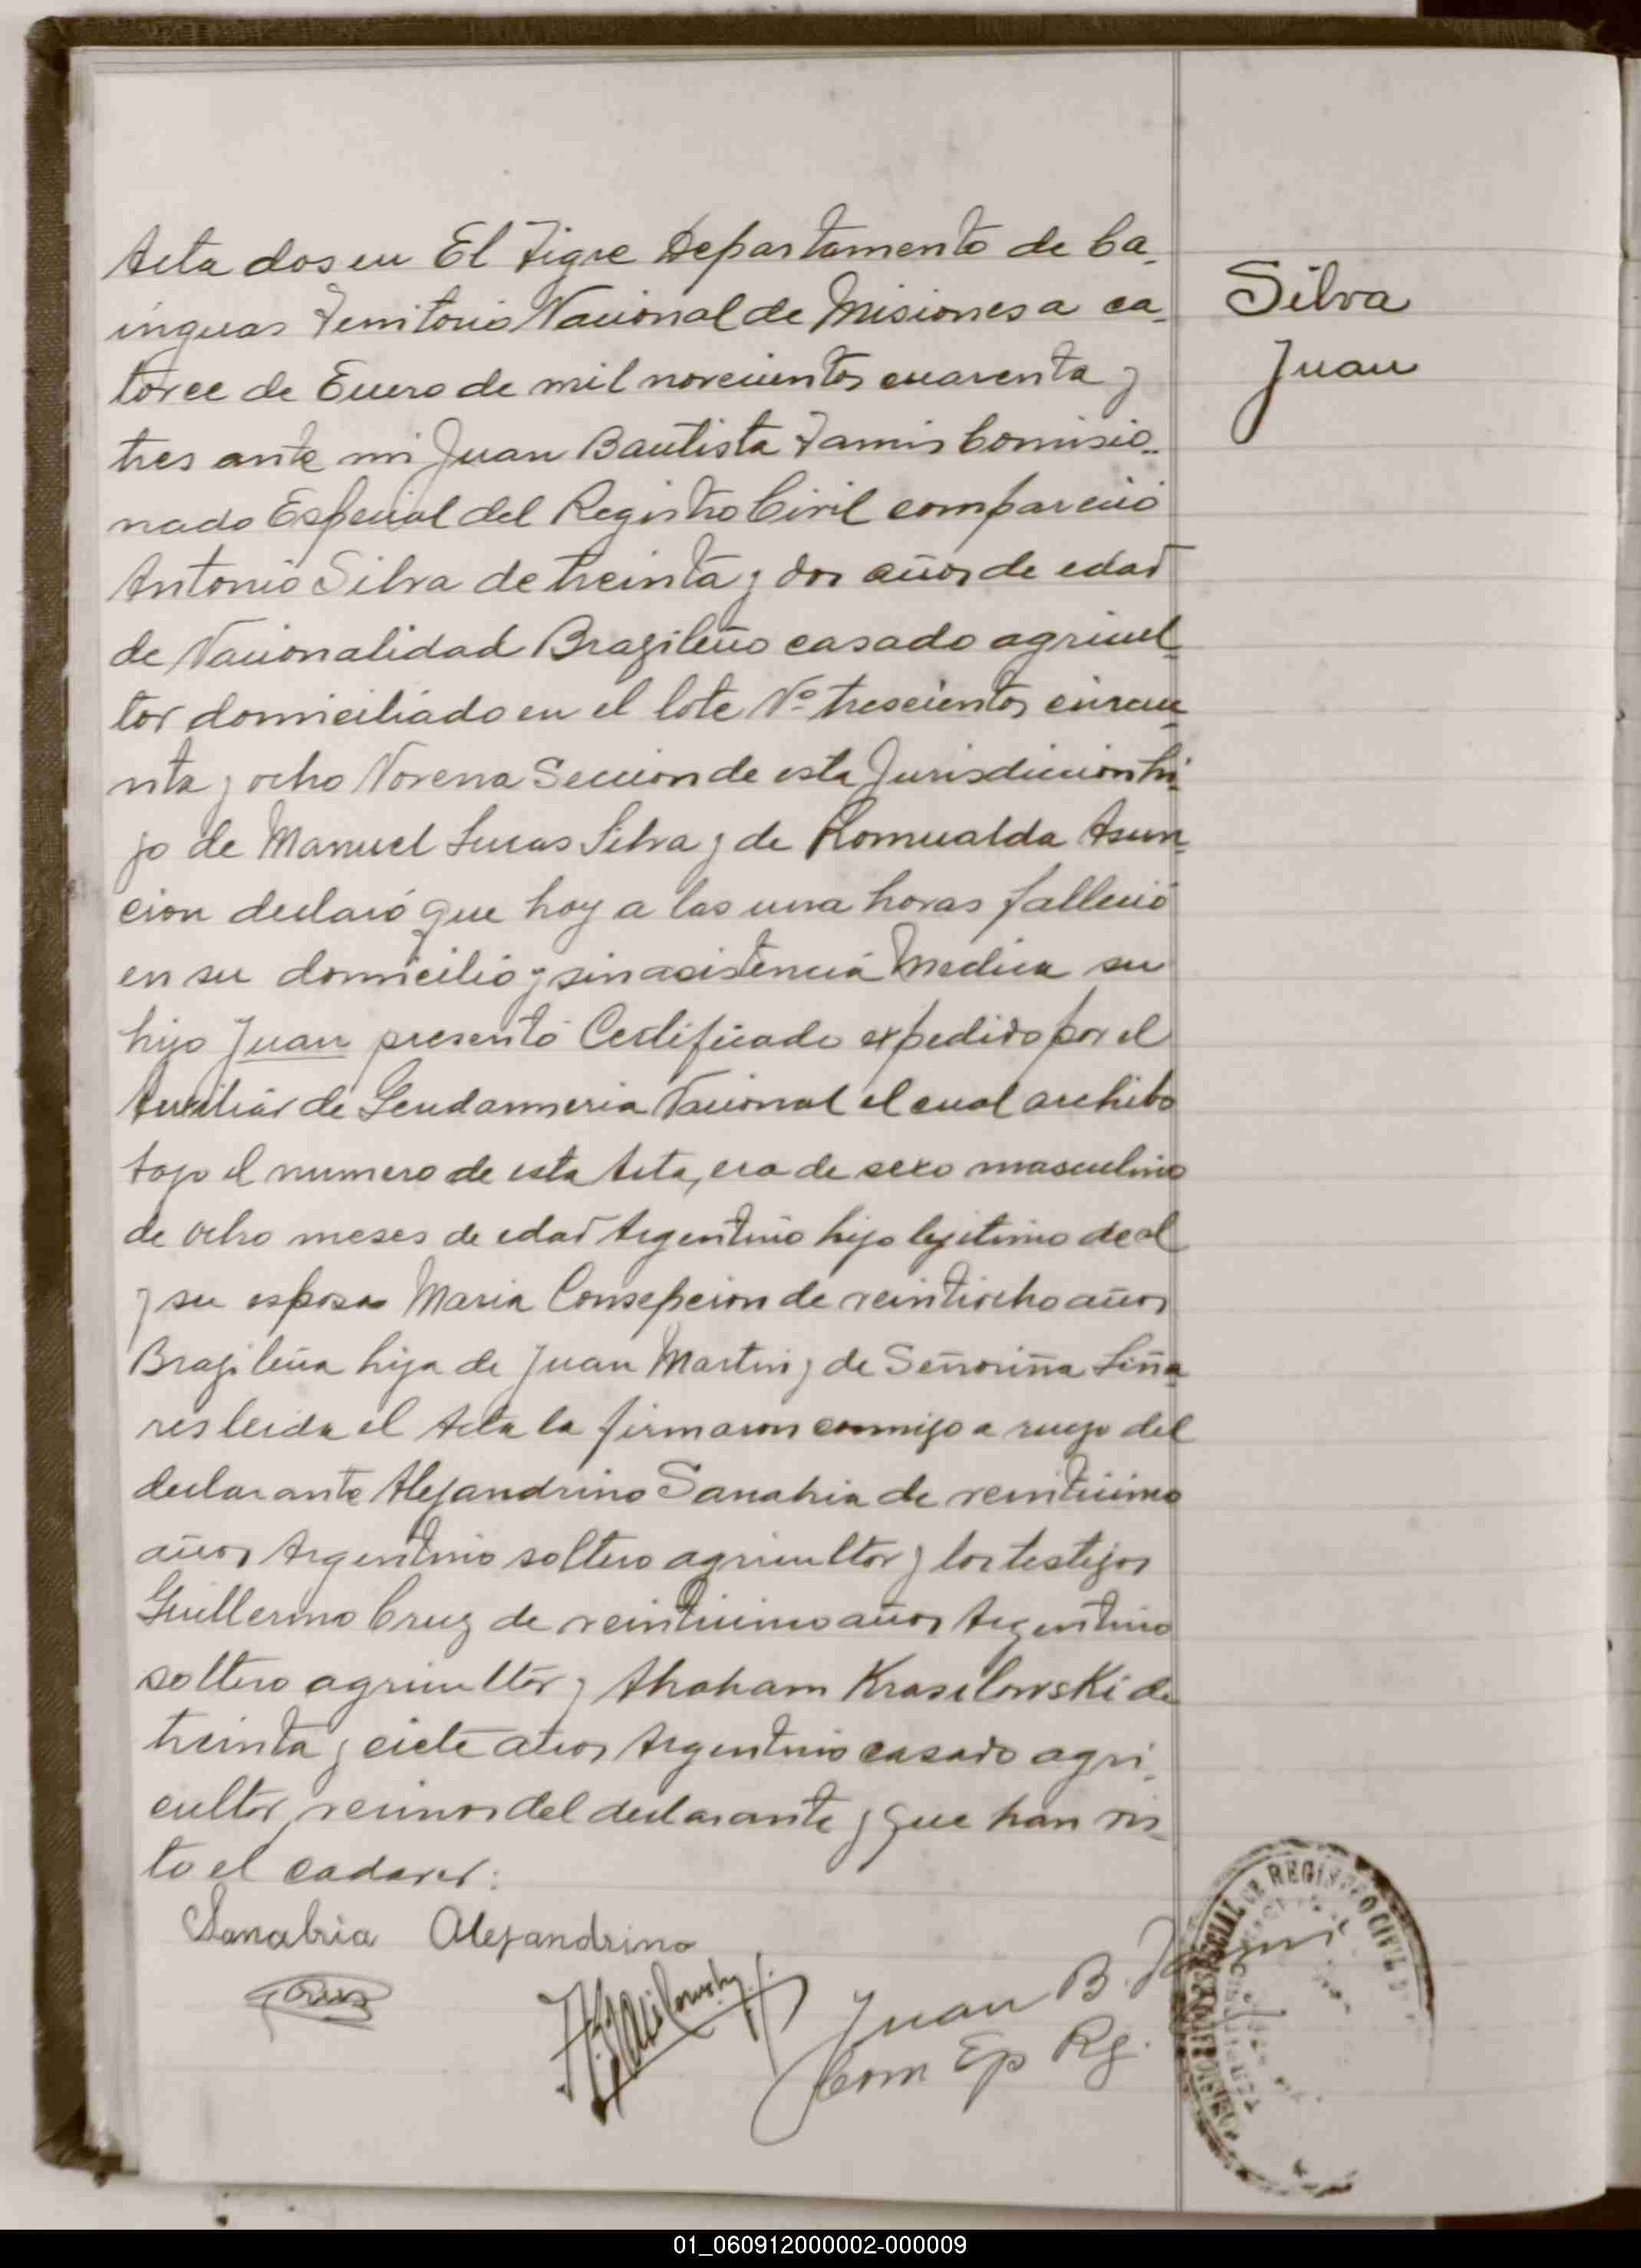 Acta dos en El Tigre Departamento de Ca-
inguas Territorio Nacional de Misiones a ca-
torce de Enero de mil novecientos cuarenta y
tres ante mi Juan Bautista Comisio-
nado Especial del Registro Civil compareció
Antonio Silva de treinta y dos años de edad
de Nacionalidad Brazileño casado agricul-
tor domiciliado en el lote Nº trescientos cincue-
nta y ocho Novena Seccion de esta Jurisdiccion hi-
jo de Manuel Lucas Silva y de Romualda Asun-
cion declaró que hoy a las una horas falleció
en su domicilio y sin asistencia Medica su
hijo Juan presentó Certificado expedido por el
Auxiliar de Gendarmeria Nacional el cual archibo
bajo el numero de esta Acta, era de sexo masculino
de ocho meses de edad Argentino hijo legitimo de el
y su esposa Maria Consepcion de veintiocho años
Brazileña hija de Juan Martin y de Señoriña Liña-
res leida el Acta la firmaron conmigo a ruego del
declarante Alejandrino Sanabria de veinticinco
años Argentino soltero agricultor y los testigos
Guillermo Cruz de veinticinco años Argentino
soltero agricultor y Abraham Krasilowski de
treinta y ciete años Argentino casado agri-
cultor, vecinos del declarante y que han vis-
to el cadaver:
Silva
Juan
Sanabria Alejandrino
Cruz
Juan B.
Com Ep Rg.
REGISTRO CIVIL
01_060912000002-000009